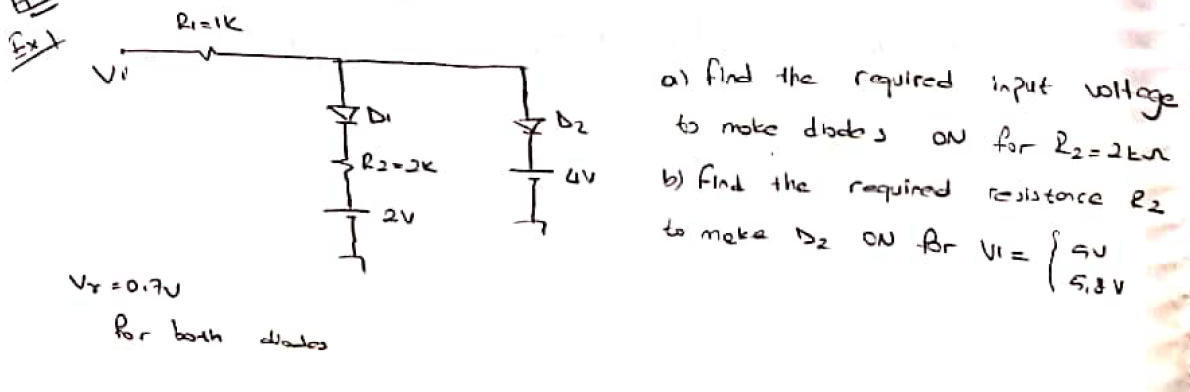 Ex+
R1=1K
Vi
D1
R2=2K
2V
D2
4V
Vγ=0.7V
for both diodes
a) find the required input voltage
to make diodes ON for R2=2kΩ
b) find the required resistance R2
to make D2 ON for Vi= { 5V
5,8 V